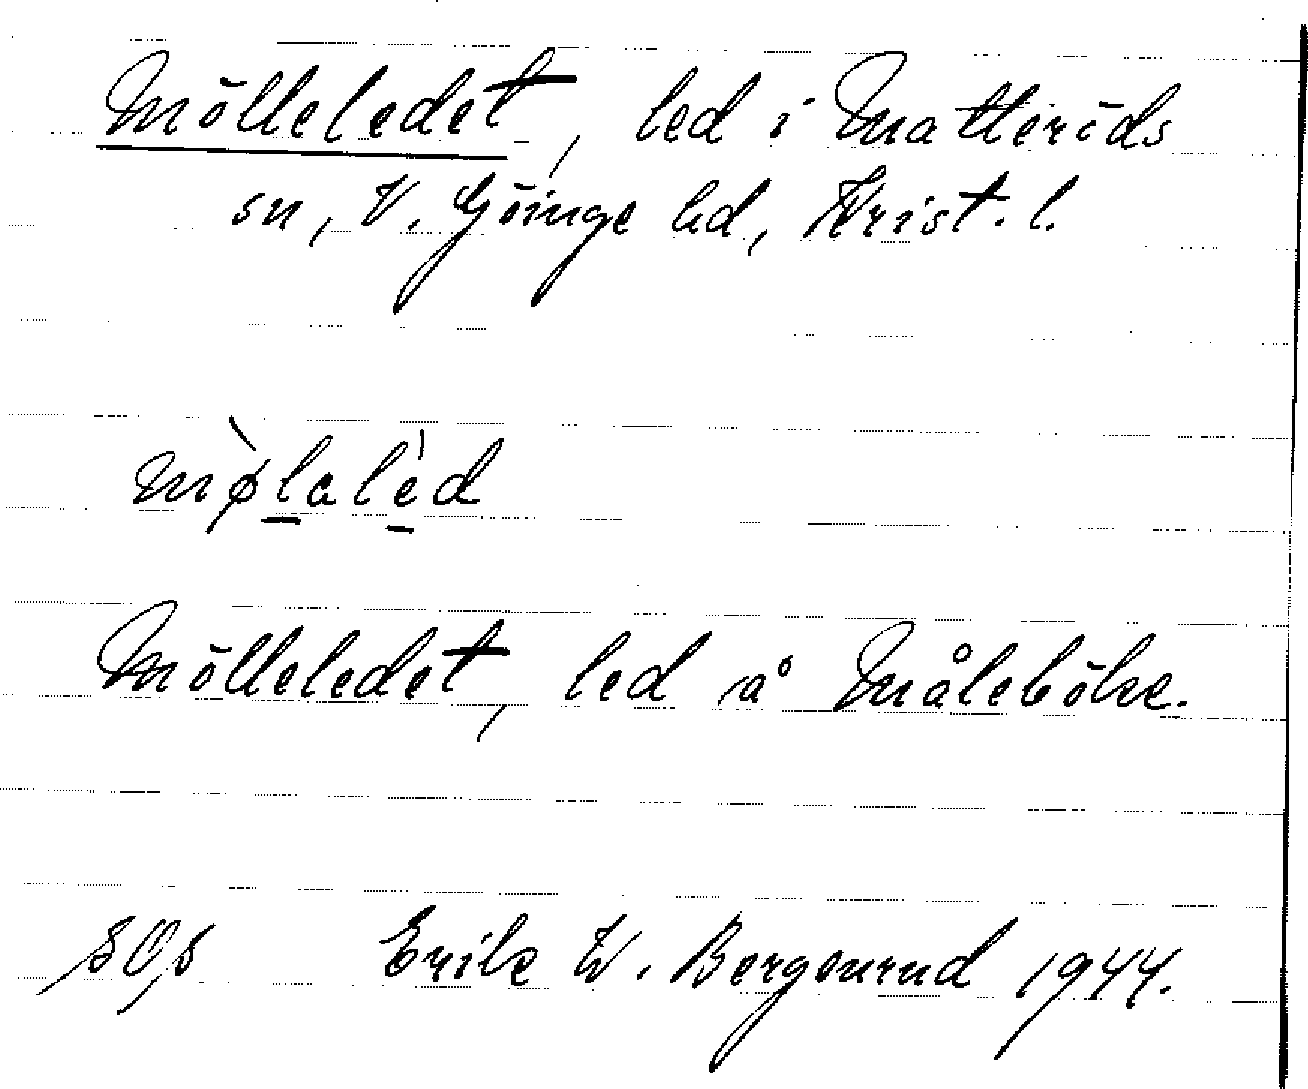 Mölleledet, led i Matteröds
sn, V. Göinge hd, Krist. l.
mø̀lalèd
Mölleledet, led å Måleböke.
Erik W. Bergenrud 1944.